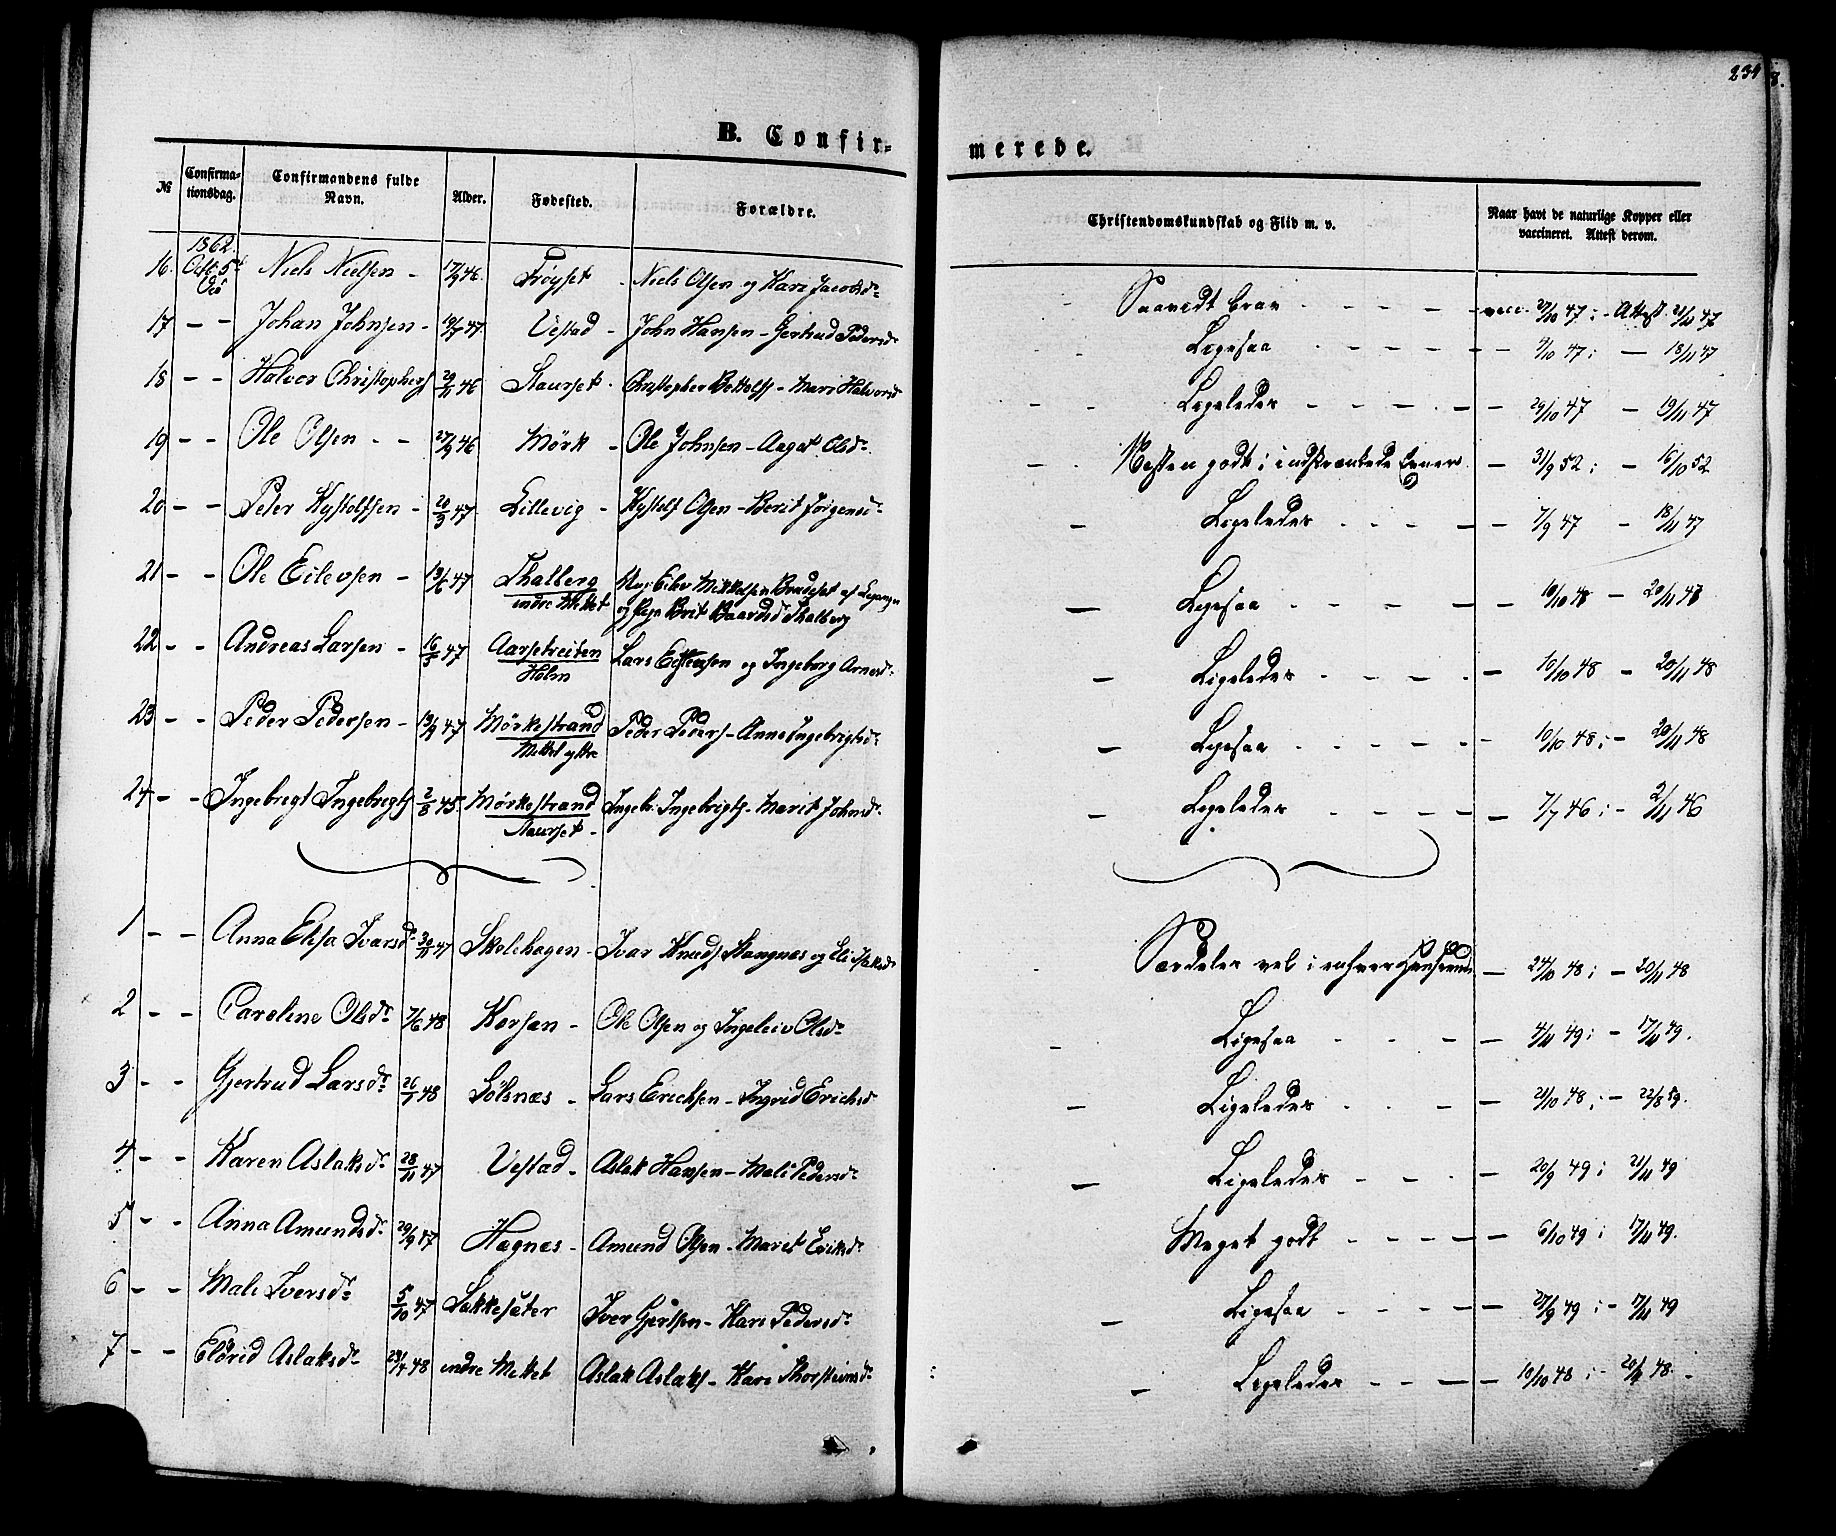 234
B. Confir-
merede.
№
Confirma-
tionsdag.
Confirmandens fulde
Navn.
Alder.
Fødested.
Forældre.
Christendomskundskab og Flid m. v.
Naar havt de naturlige Kopper eller
vaccineret. Attest derom.
1862.
16. Octb 5te Niels Nielsen - 17/9 46. Frøyset - Niels Olsen og Kari Jacobsd: - Saavidt brav - - - - vacc. 27/10 47; - Attest 21/11 47
17 - - Johan Johnsen - 19/7 47 Vestad - John Hansen - Gertrud Pedersd: - - Ligesaa - - - - - 9/10 47; - 18/11 47
18 - - Halvor Christophers 29/11 46 Staurset - Christopher Bottolfs - Mari Halvorsd - - Ligeledes - - - - - 29/10 47 - 19/11 47
19 - - Ole Olsen - - 27/9 46 Mörk - Ole Johnsen - Aagot Olsd: - - Næsten godt; indskrænkede Evner - 31/9 52; - 16/10 52
20 - - Peter Kystolfsen - 20/3 47 Lillevig - Kystolf Olsen - Berit Jörgensd: - Ligeledes - - - - - 7/9 47 - 18/11 47
21 - - Ole Eilevsen - 13/6 47 Thalberg Ung: Eilev Mikkelsen
indre Mittet og Pige Brit Baardsd Thalberg - Ligesaa - - - - - 10/10 48 - 20/11 48
22 - - Andreas Larsen - 16/5 47 Aarsetreiten Lars Eistensen og Ingeborg Arnesd: - Ligeledes - - - - - 10/10 48 - 20/11 48
Holm
23 - - Peder Pedersen - 13/9 47 Mörkestrand Peder Peders - Anne Ingebrigtsd: - Ligesaa - - - - - 10/10 48; - 20/11 48
Mittet yttre
24 - - Ingebrigt Ingebrigts 2/8 45. Mörkestrand Ingebr. Ingebrigts - Marit Johnsd: - Ligeledes - - - - - 7/7 46; - 2/11 46
Staurset -
1 - - Anna Elisa Ivarsd: 30/11 47 Skolehagen - Ivar Knuds Stangnes og Eli Isaksd Særdeles vel i enhver Henseende - 24/10 48; - 20/11 48
2 - - Caroline Olsd: 7/6 48 Korsan - Ole Olsen og Ingeleiv Olsd: - Ligesaa - - - - 4/11 49; - 17/11 49.
3 - - Gjertrud Larsd: 26/1 48 Sölsnæs - Lars Erichsen - Ingrid Erichsd - Ligeledes - - - - 21/10 48; - 22/8 59.
4 - - Karen Aslaksd: 28/11 47 Vestad - Aslak Hansen - Mali Pedersd: - Ligeledes - - - - 20/9 49; 21/11 49
5 - - Anna Amundsd: 29/9 47 Hegnæs - Amund Olsen - Marit Eriksd: Meget godt - - - - - 6/10 49; 17/11 49.
6 - - Mali Iversd: 5/10 47 Sakkesäter Iver Gjertsen - Kari Pedersd: - Ligesaa - - - - - 27/9 49; - 17/11 49
7 - - Eldrid Aslaksd: 23/4 48 indre Mittet Aslak Aslaks - Kari Thorsteinsd: - Ligeledes - - - - 10/10 48; - 20/11 48.